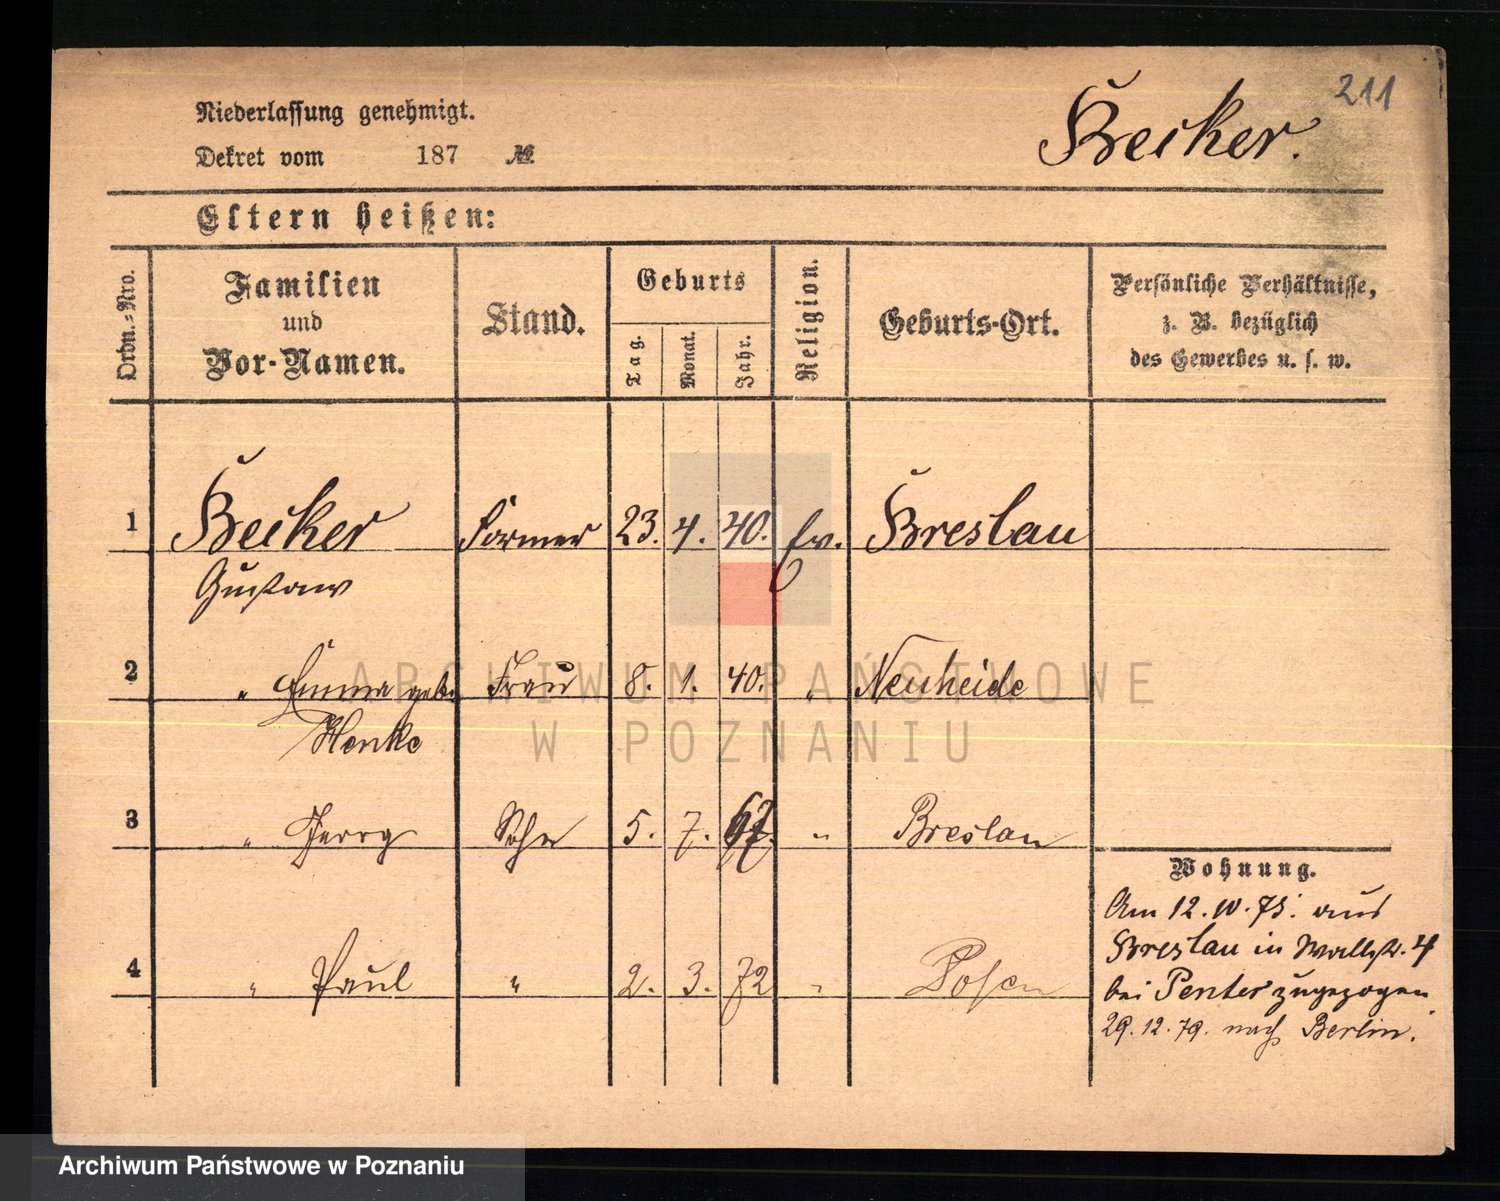 211
Becker.
Niederlassung genehmigt.
Dekret vom 187 №
Eltern heißen:
Ordn.-Nro.
Familien
und
Vor-Namen.
Stand.
Geburts
Tag.
Monat.
Jahr.
Religion.
Geburts-Ort.
Persönliche Verhältnisse,
z. B. bezüglich
des Gewerbes u. s. w.
1 Becker Former 23. 4. 40. Ev. Breslau
Gustaw
2 " Emma geb. Frau 8. 1. 40. " Neuheide
Henke
3 " Georg Sohn 5. 7. 67. " Breslau
4 " Paul " 2. 3. 72 " Posen
Wohnung.
Am 12. 10. 75. aus
Breslau in Wallstr. 4
bei Penter zugezogen
29. 12. 79. nach Berlin.
ARCHIWUM PAŃSTWOWE
W POZNANIU
Archiwum Państwowe w Poznaniu